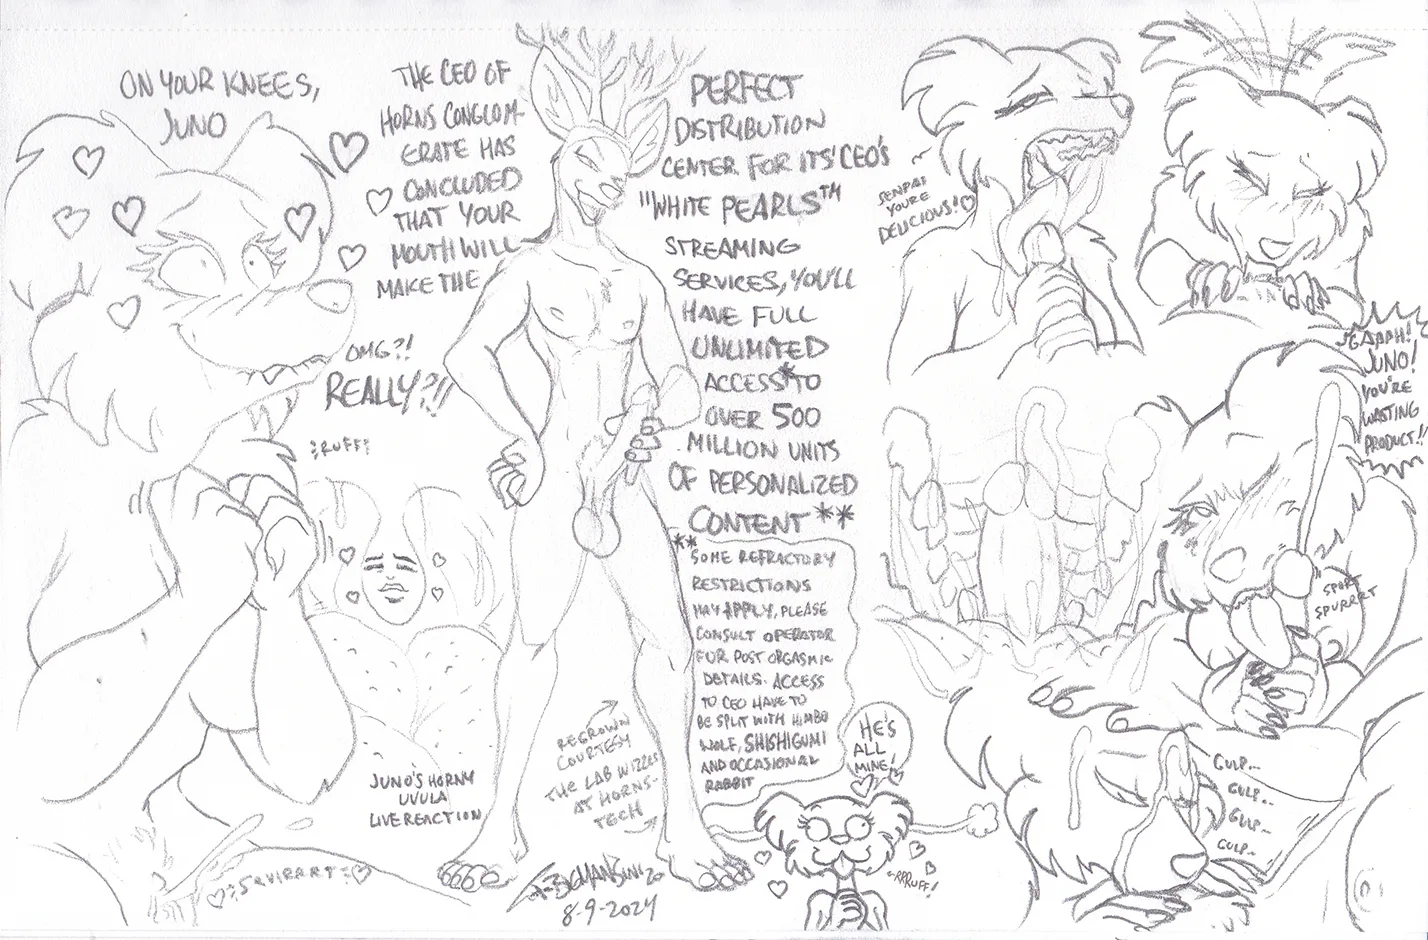 ON YOUR KNEES,
JUNO
THE CEO OF
HORNS CONGLOM-
ERATE HAS
CONCLUDED
THAT YOUR
MOUTH WILL
MAKE THE
PERFECT
DISTRIBUTION
CENTER FOR ITS' CEO'S
"WHITE PEARLS"™
STREAMING
SERVICES, YOU'LL
HAVE FULL
UNLIMITED
ACCESS* TO
OVER 500
MILLION UNITS
OF PERSONALIZED
CONTENT**
OMG?!
REALLY?!!
RUFF!
** SOME REFRACTORY
RESTRICTIONS
MAY APPLY, PLEASE
CONSULT OPERATOR
FUR POST ORGASMIC
DETAILS. ACCESS
TO CEO HAVE TO
BE SPLIT WITH HIMBO
WOLF, SHISHIGUMI
AND OCCASIONAL
RABBIT
SENPAI
YOU'RE
DELICIOUS!
GAAAH!
JUNO!
YOU'RE
WASTING
PRODUCT!!
SPURRRT
JUNO'S HORNY
UVULA
LIVE REACTION
REGROWN
COURTESY
THE LAB WIZZES
AT HORNS-
TECH
HE'S
ALL
MINE!
RRRUFF!
GULP..
GULP..
GULP..
GULP..
SQUIRRRT
8-9-2024